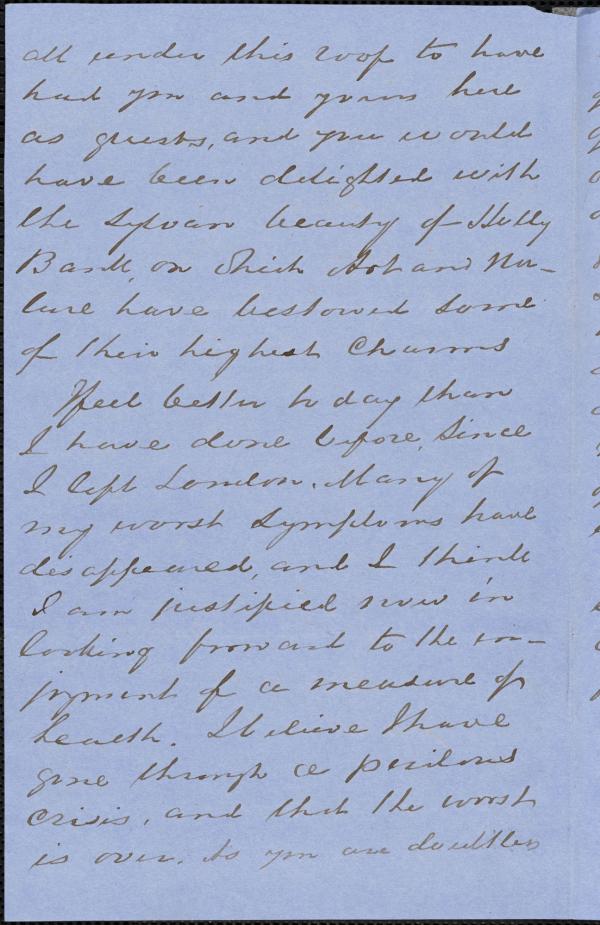 all under this roof to have
had you and yours here
as guests, and you would
have been delighted with
the sylvan beauty of Holly
Bank, on which Art and Na-
ture have bestowed some
of their highest charms
I feel better to day than
I have done before, since
I left London. Many of
my worst symptoms have
disappeared, and I think
I am justified now in
looking forward to the en-
joyment of a measure of
health. I believe I have
gone through a perilous
crisis, and that the worst
is over. As you are doubtless